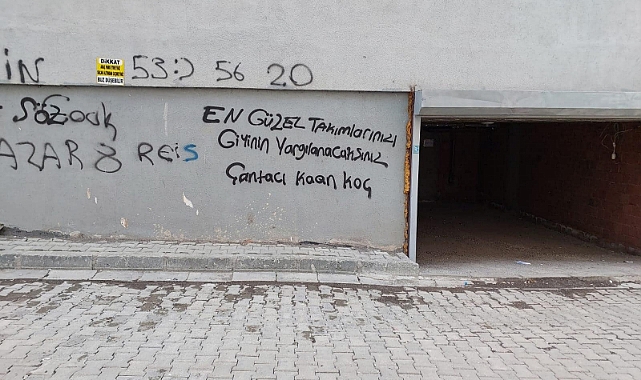 İN
DİKKAT
53:) 56 20
Sözcük
AZAR 8 REiS
EN GÜZEL TAKIMLARINIZI
GİYİNİN YARGILANACAKSINIZ
Çantacı Kaan Koç